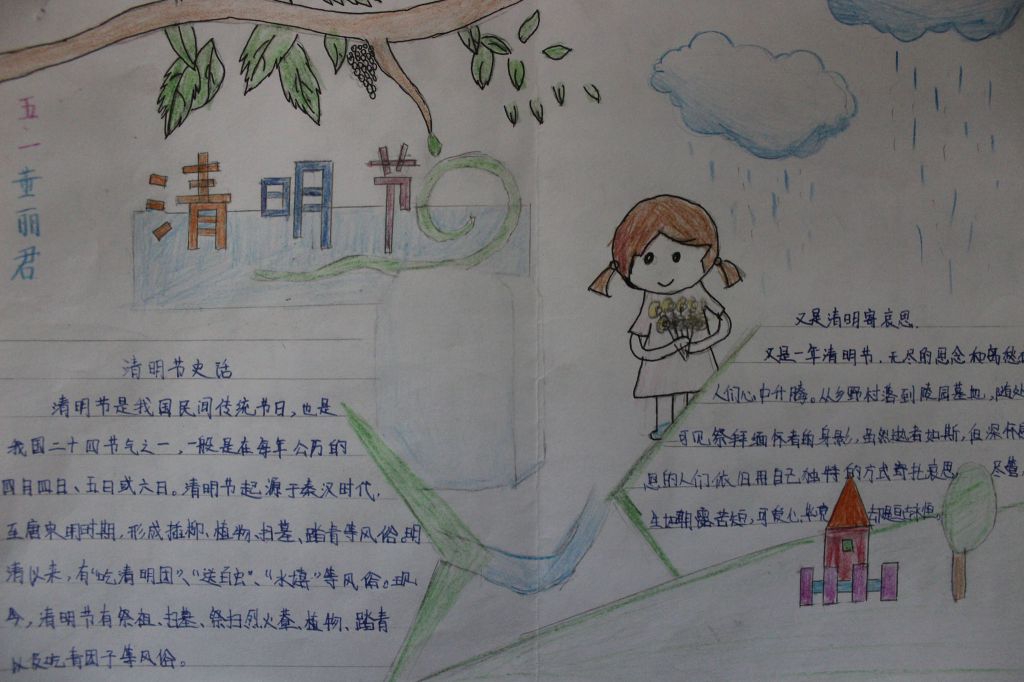 五一 童丽君
清明节
清明节史话
清明节是我国民间传统节日,也是
我国二十四节气之一,一般是在每年公历的
四月四日、五日或六日。清明节起源于秦汉时代,
至唐宋明时期,形成插柳、植物、扫墓、踏青等风俗,明
清以来,有“吃清明团”、“送百虫”、“水
”等风俗。现
今,清明节有祭祖、扫墓、祭扫烈火墓、植物、踏青
以及吃青团子等风俗。
又是清明寄哀思
又是一年清明节,无尽的思念和离愁
人们心中升腾。从乡野村落到陵园墓地,随处
可见祭拜缅怀者的身影,虽然逝者如斯,但深怀
思的人们依旧用自己独特的方式寄托哀思
尽管
苦短,可爱心